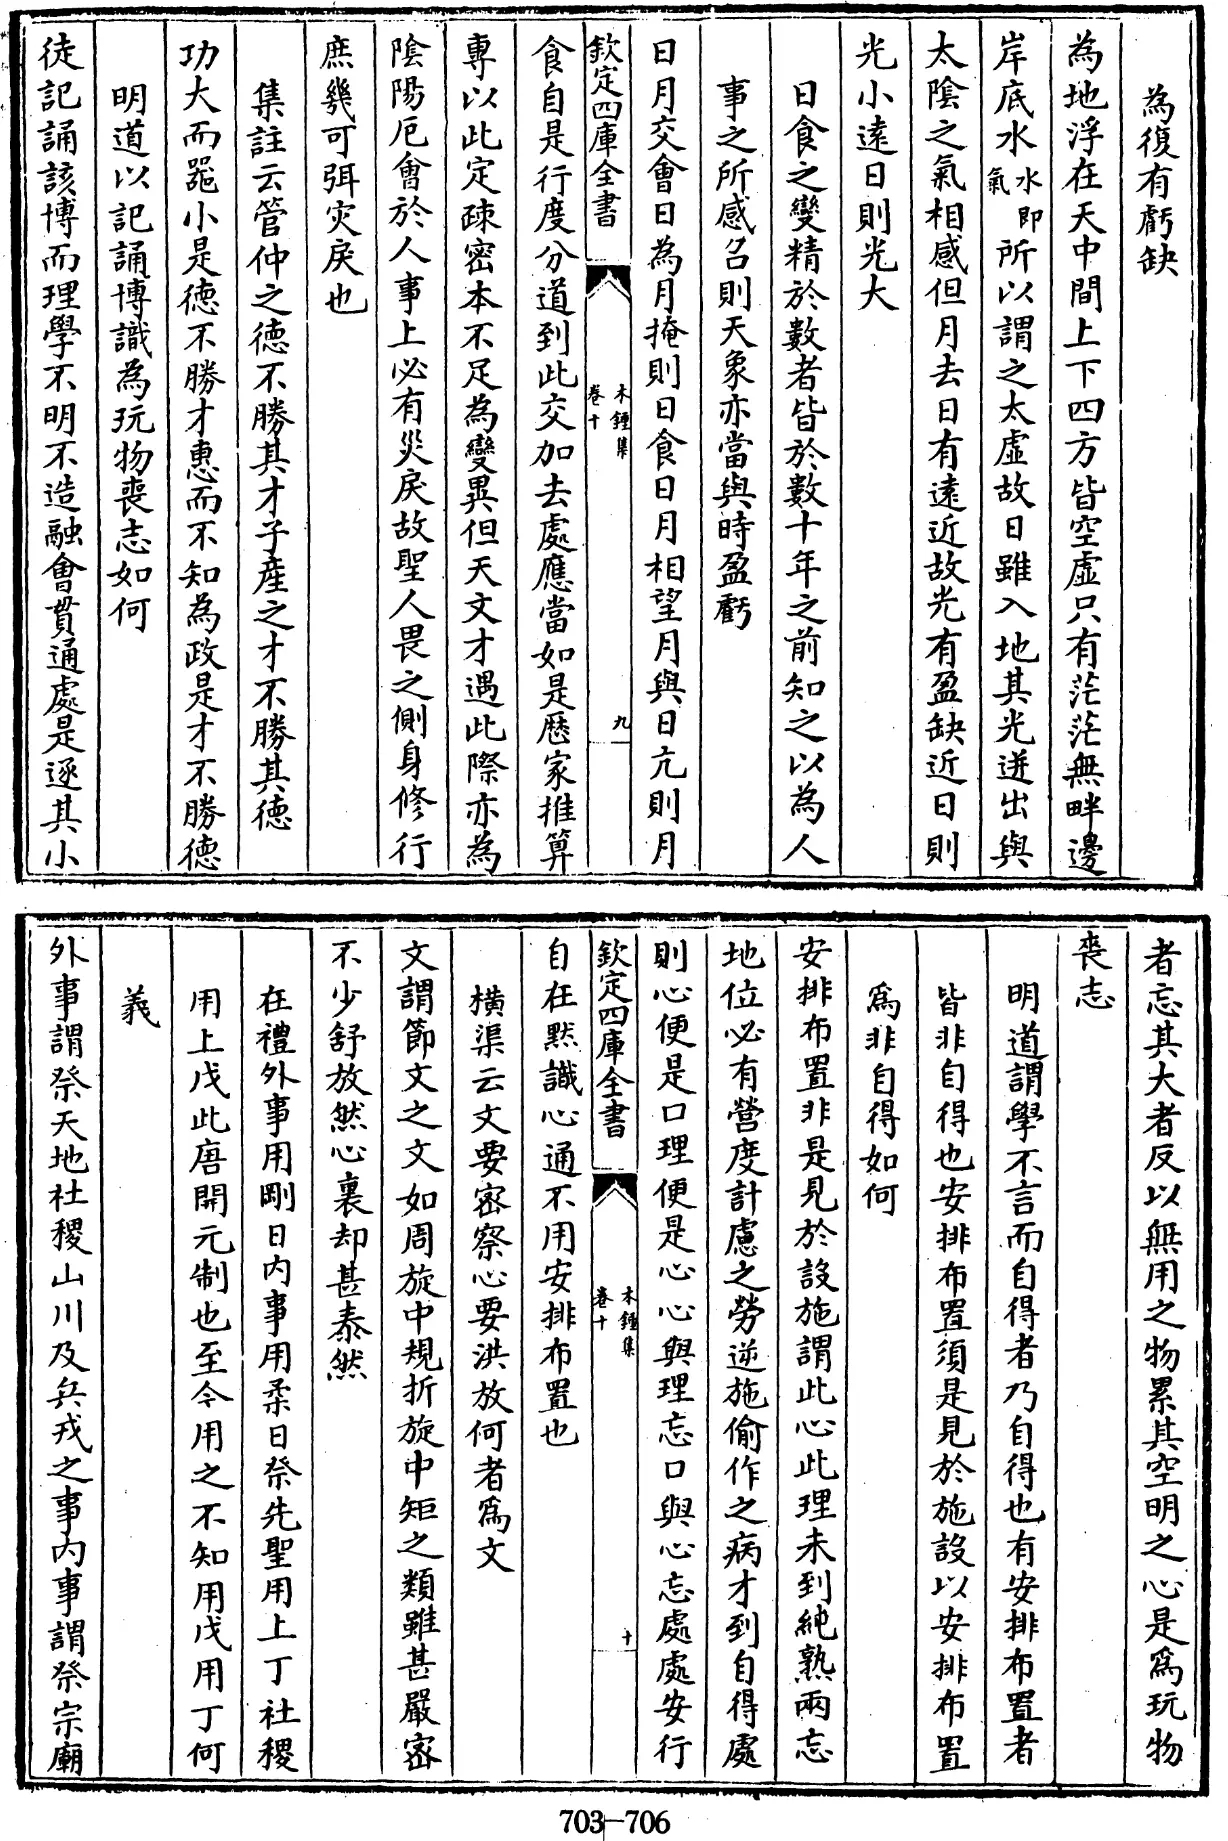 為復有虧缺
為地浮在天中間上下四方皆空虛只有茫茫無畔邊
岸底水水即氣所以謂之太虛故日雖入地其光迸出與
太陰之氣相感但月去日有遠近故光有盈缺近日則
光小遠日則光大
日食之變精於數者皆於數十年之前知之以為人
事之所感召則天象亦當與時盈虧
日月交會日為月掩則日食日月相望月與日亢則月
欽定四庫全書
木鍾集
卷十
九
食自是行度分道到此交加去處應當如是歷家推算
專以此定疎密本不足為變異但天文才遇此際亦為
陰陽厄會於人事上必有災戾故聖人畏之側身修行
庶幾可弭灾戾也
集註云管仲之德不勝其才子產之才不勝其德
功大而器小是德不勝才惠而不知為政是才不勝德
明道以記誦博識為玩物喪志如何
徒記誦該博而理學不明不造融會貫通處是逐其小
者忘其大者反以無用之物累其空明之心是為玩物
喪志
明道謂學不言而自得者乃自得也有安排布置者
皆非自得也安排布置須是見於施設以安排布置
為非自得如何
安排布置非是見於設施謂此心此理未到純熟兩忘
地位必有營度計慮之勞逆施偷作之病才到自得處
則心便是口理便是心心與理忘口與心忘處處安行
欽定四庫全書
木鍾集
卷十
十
自在默識心通不用安排布置也
橫渠云文要密察心要洪放何者為文
文謂節文之文如周旋中規折旋中矩之類雖甚嚴密
不少舒放然心裏却甚泰然
在禮外事用剛日內事用柔日祭先聖用上丁社稷
用上戊此唐開元制也至今用之不知用戊用丁何
義
外事謂祭天地社稷山川及兵戎之事內事謂祭宗廟
703-706